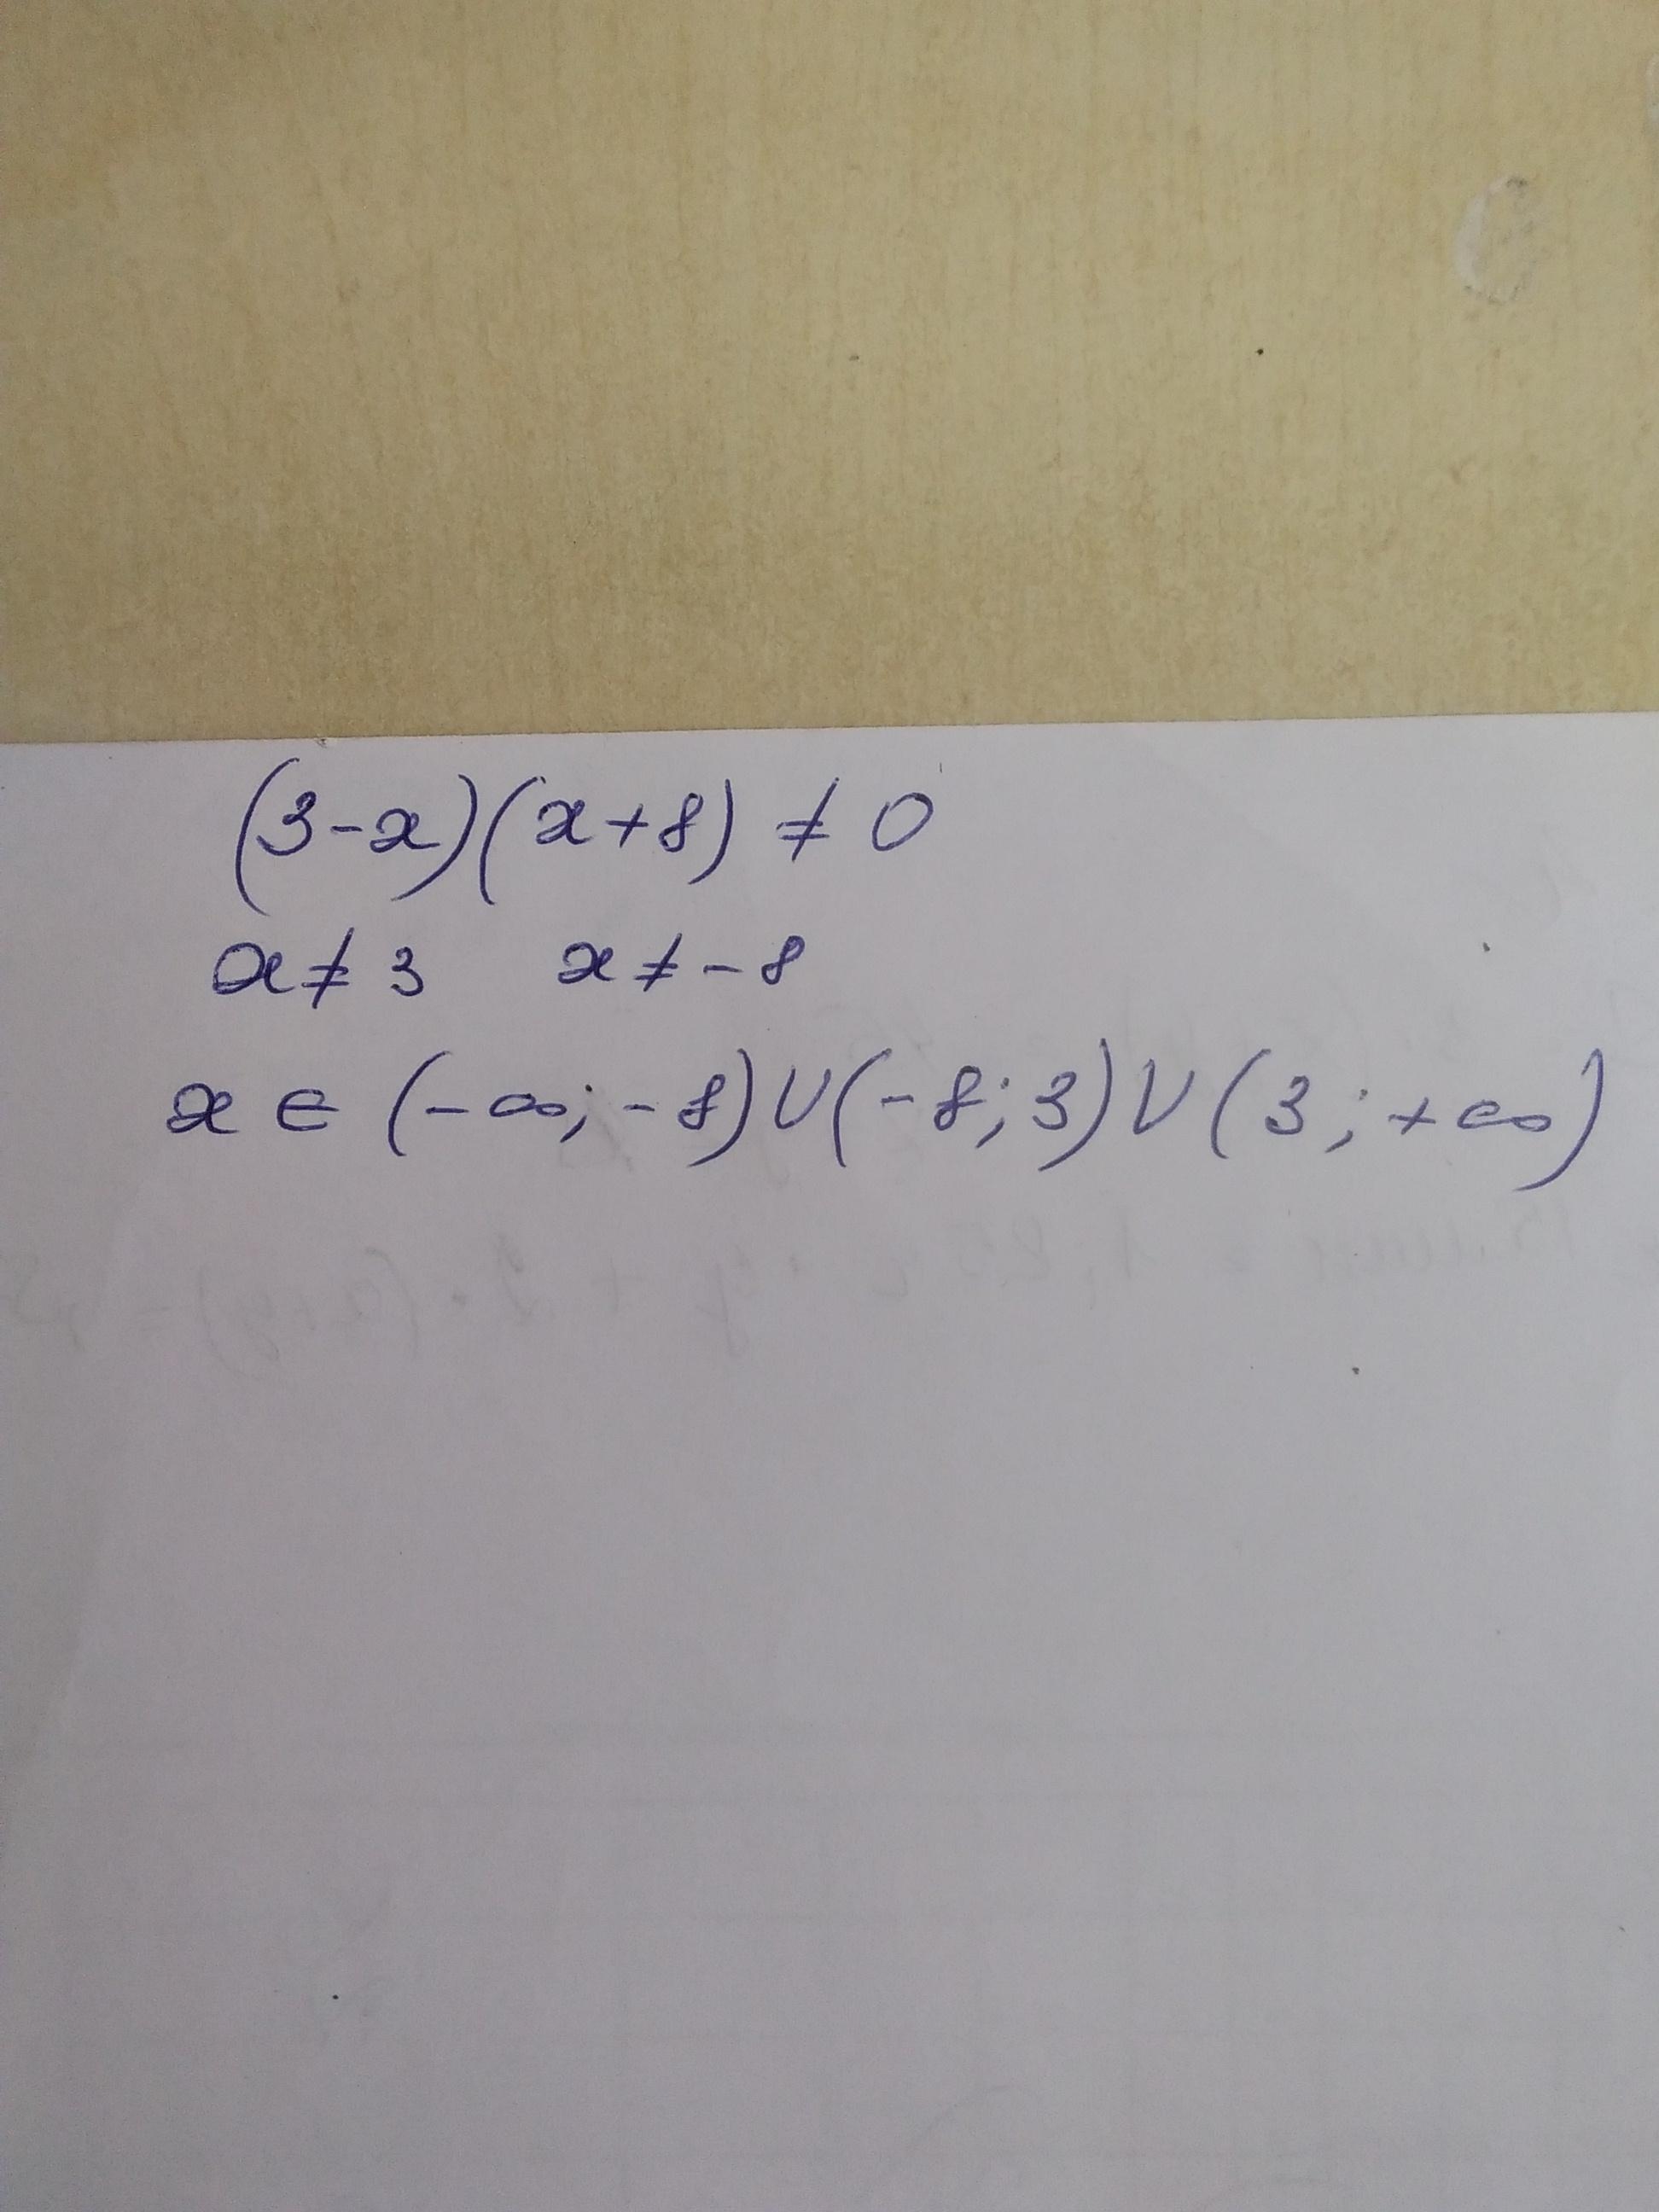 (3-x)(x+8) ≠ 0
x ≠ 3 x ≠ -8
x ∈ (-∞; -8) ∪ (-8; 3) ∪ (3; +∞)